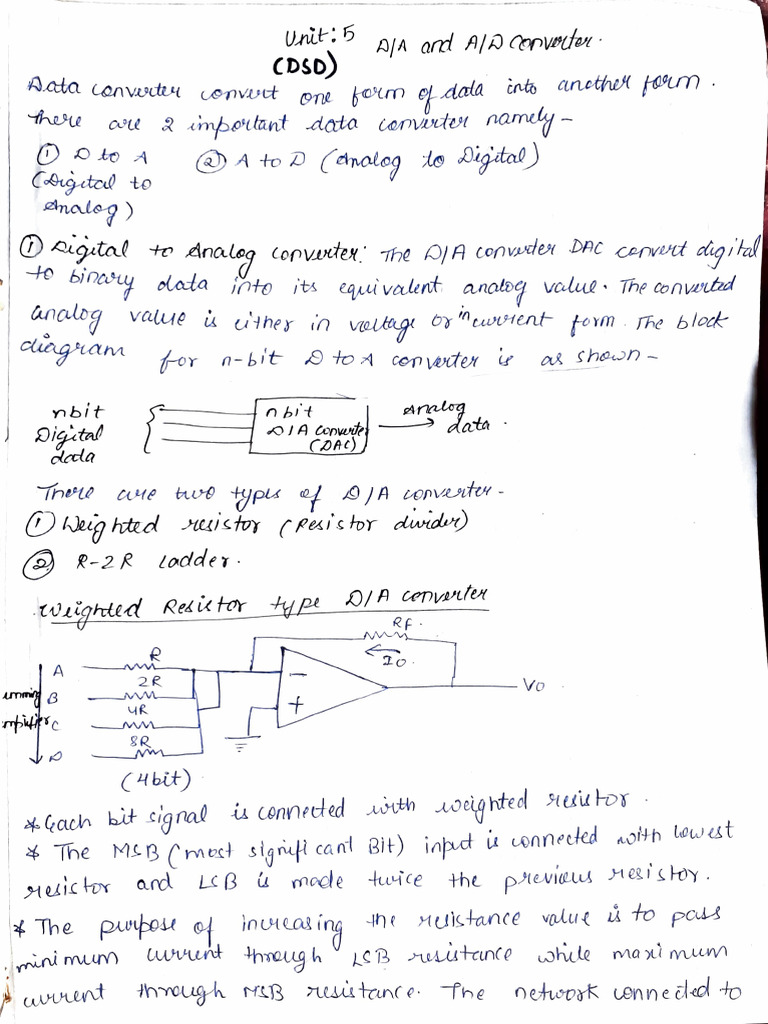 Unit: 5 D/A and A/D Converter.
(DSD)
Data converter convert one form of data into another form.
There are 2 important data converter namely -
① D to A ② A to D (Analog to Digital)
(Digital to
Analog)
① Digital to Analog converter: The D/A converter DAC convert digital
to binary data into its equivalent analog value. The converted
analog value is either in voltage or in current form. The block
diagram for n-bit D to A converter is as shown -
nbit
Digital
data
nbit
D/A Converter
(DAC)
Analog
data.
There are two types of D/A converter -
① Weighted resistor (Resistor divider)
② R-2R Ladder.
Weighted Resistor type D/A converter
RF.
I0.
A R
2R
B
4R
C
8R
D
umming
mplifier
-
+
V0
(4bit)
* Each bit signal is connected with weighted resistor.
* The MSB (most significant Bit) input is connected with lowest
resistor and LSB is made twice the previous resistor.
* The purpose of increasing the resistance value is to pass
minimum current through LSB resistance while maximum
current through MSB resistance. The network connected to